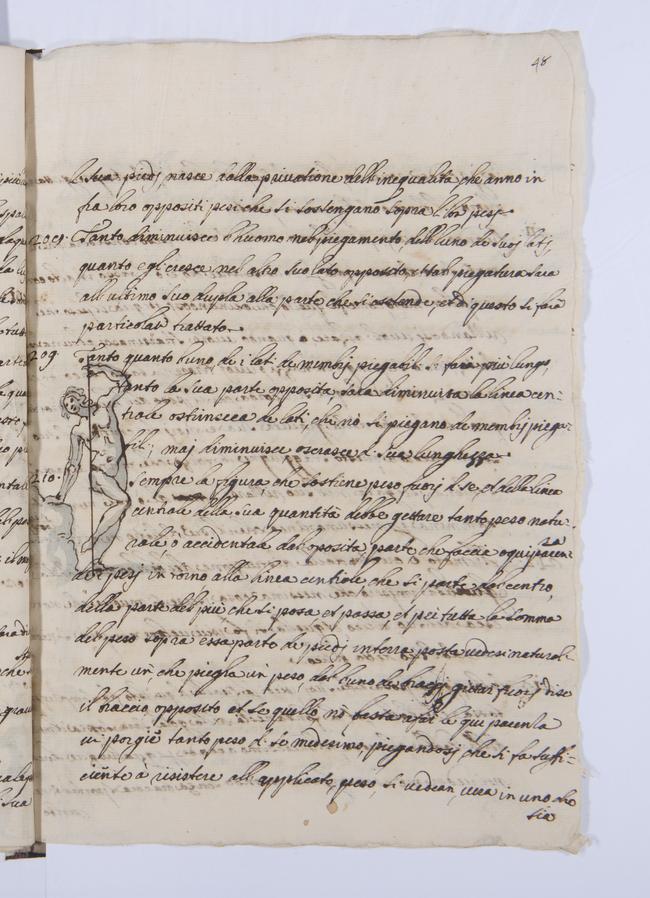 48
Sua piedj, nasce dalla privatione dell'inequalità, che anno in
fra loro oppositi pesi che si sostengano sopra l'lor pesj.
209. Tanto diminuisce l'huomo nel piegamento dell'uno de suoj latj,
quanto egli cresce nel altro suo lato opposito, et tal piegatura sara
all'ultimo suo dupla alla parte che si estende, et di questo si farà
particolar trattato.
209 Tanto quanto l'uno, de i lati de membrj piegabili si farà più lungo,
tanto la sua parte opposita sarà diminuita la linea cen-
trale estrinseca de lati che nō si piegano de membrj piega-
bili; maj diminuisce o cresce di sua lunghezza.
210. Sempre la figura, che sostiene peso, fuorj di se, et della linea
centrale della sua quantità debbe gettare tanto peso natu-
rale, ò accidentale dal oposita parte che faccia equiparan-
za
de i pesj in torno alla linea centrale che si parte dal centro,
della parte del pie che si posa et passa, et per tutta la somma
del peso sopra essa parte de piedj in terra posta vedesi natural-
mente un', che piegha un peso, dal l'uno de braccj gittar fuorj di se
il braccio opposito et se quello nō basta a far l'equiparentia
vi porgie tanto peso di se medesimo, piegandosj, che si fa suffi-
ciente à resistere all'applicato, peso, si vedean, cora in uno che
sia